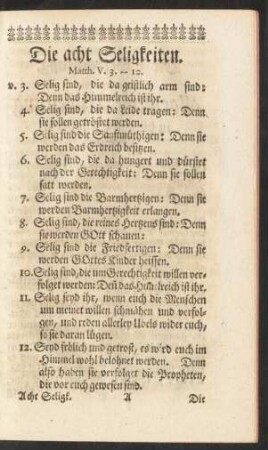 Die acht Seligkeiten.
Matth. V. 3. -- 12.
v. 3. Selig sind, die da geistlich arm sind:
Denn das Himmelreich ist ihr.
4. Selig sind, die da Leide tragen: Denn
sie sollen getröstet werden.
5. Selig sind die Sanftmüthigen: Denn sie
werden das Erdreich besitzen.
6. Selig sind, die da hungert und dürstet
nach der Gerechtigkeit: Denn sie sollen
satt werden.
7. Selig sind die Barmhertzigen: Denn sie
werden Barmhertzigkeit erlangen.
8. Selig sind, die reines Hertzens sind: Denn
sie werden GOtt schauen:
9. Selig sind die Friedfertigen: Denn sie
werden GOttes Kinder heissen.
10. Selig sind, die um Gerechtigkeit willen ver-
folget werden: Deñ das Himelreich ist ihr.
11. Selig seyd ihr, wenn euch die Menschen
um meinet willen schmähen und verfol-
gen, und reden allerley Übels wider euch,
so sie daran lügen.
12. Seyd frölich und getrost, es wird euch im
Himmel wohl belohnet werden. Denn
also haben sie verfolget die Propheten,
die vor euch gewesen sind.
Acht Seligk. A Die